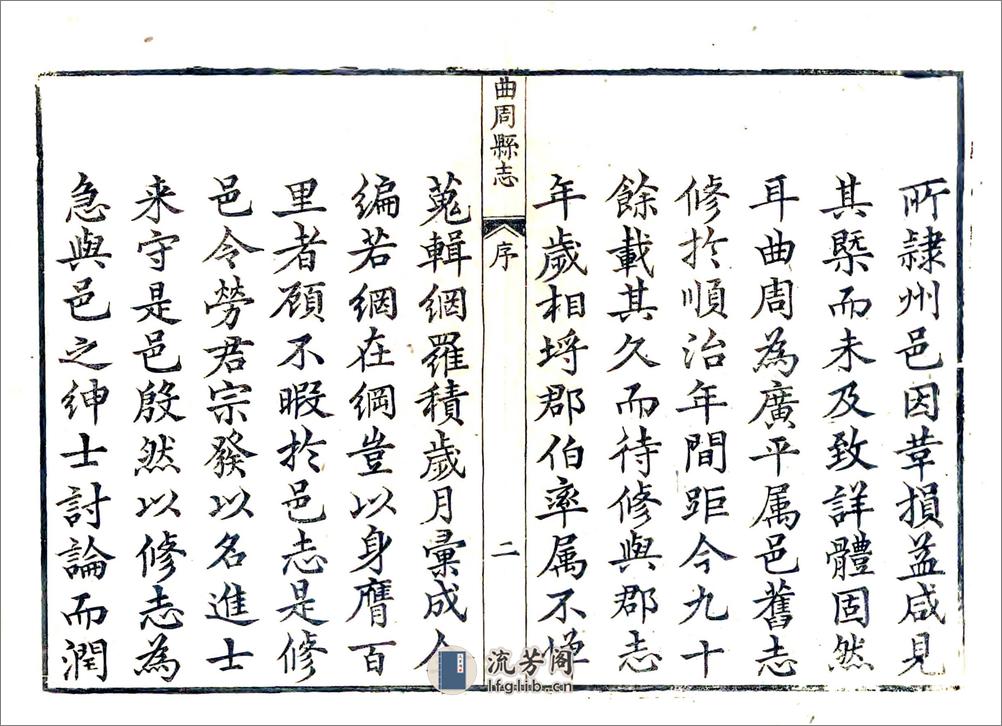 所隸州邑因革損益咸見
其槩而未及致詳體固然
耳曲周為廣平属邑舊志
修扵順治年間距今九十
餘載其久而待修與郡志
年歲相埒郡伯率属不憚
曲周縣志
序
二
蒐輯網羅積歲月彙成
編若網在綱豈以身膺百
里者顧不暇扵邑志是修
邑令勞君宗發以名進士
来守是邑殷然以修志為
急與邑之紳士討論而潤
流芳阁
lfglib.cn